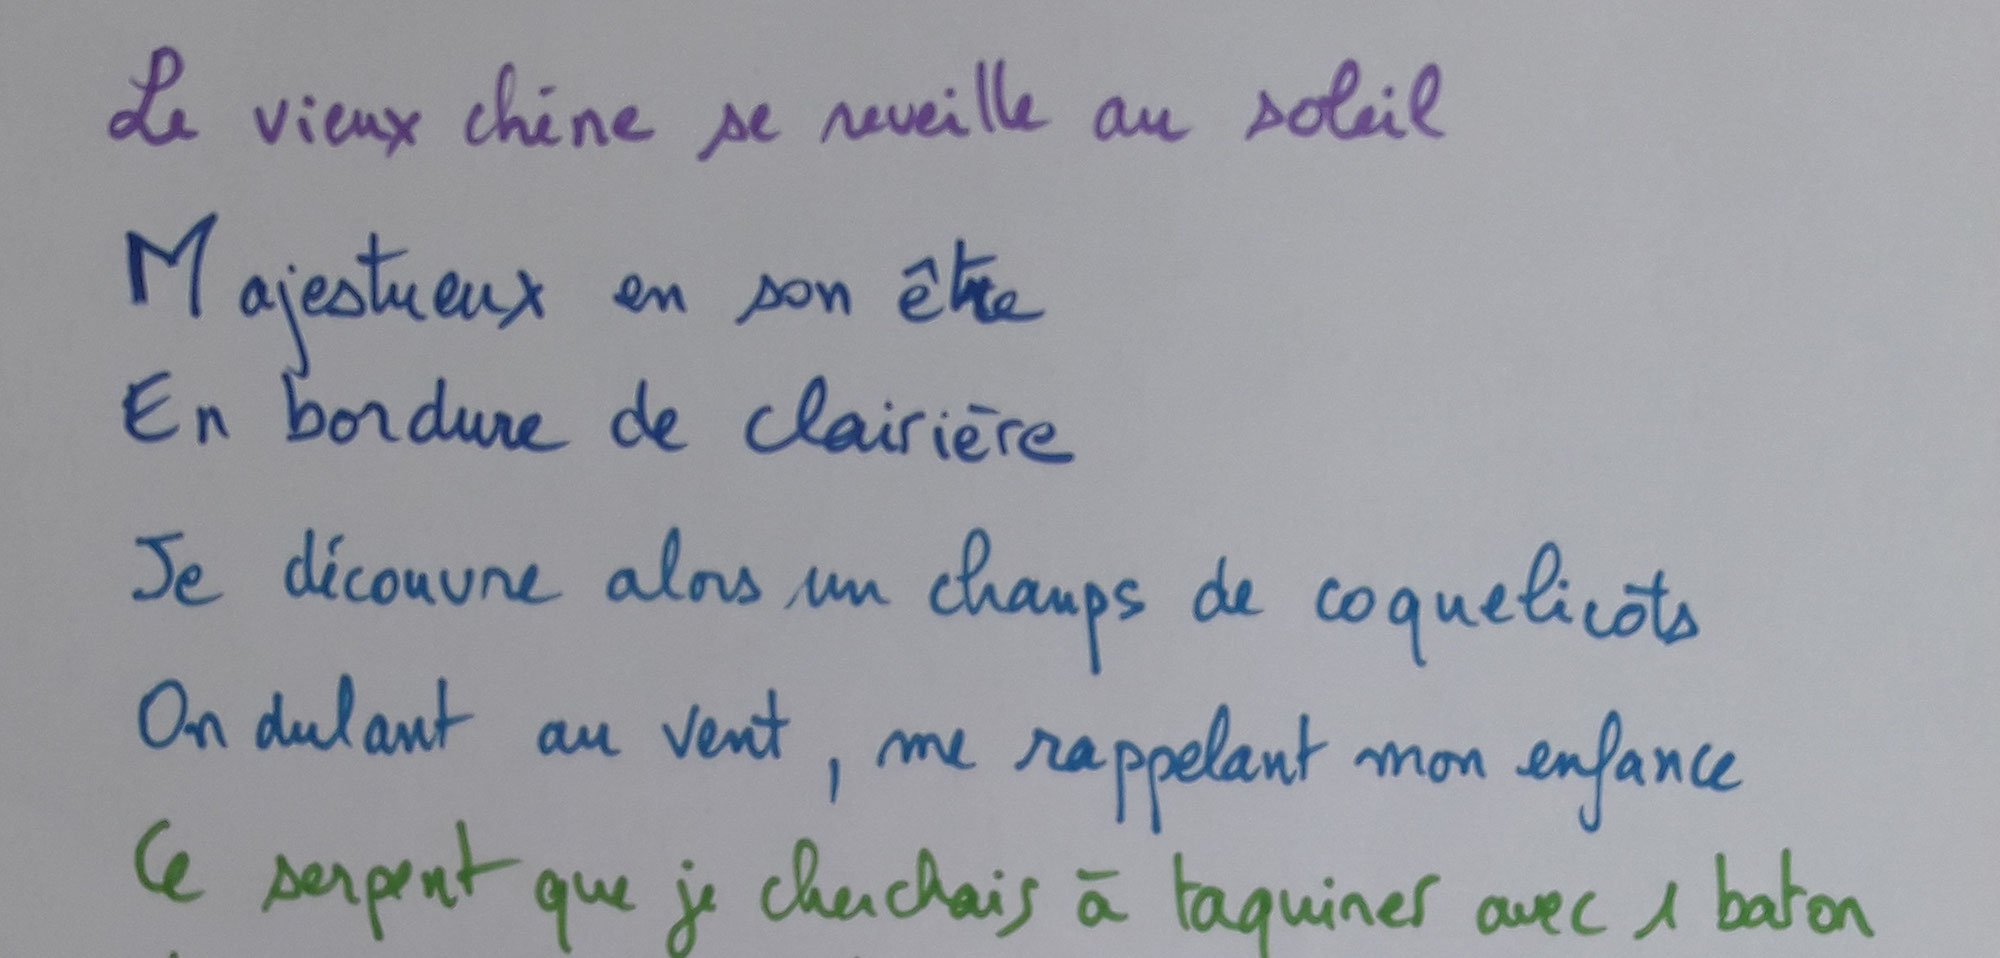 Le vieux chêne se reveille au soleil
Majestueux en son être
En bordure de clairière
Je découvre alors un champs de coquelicôts
Ondulant au vent, me rappelant mon enfance
Ce serpent que je cherchais à taquiner avec 1 baton